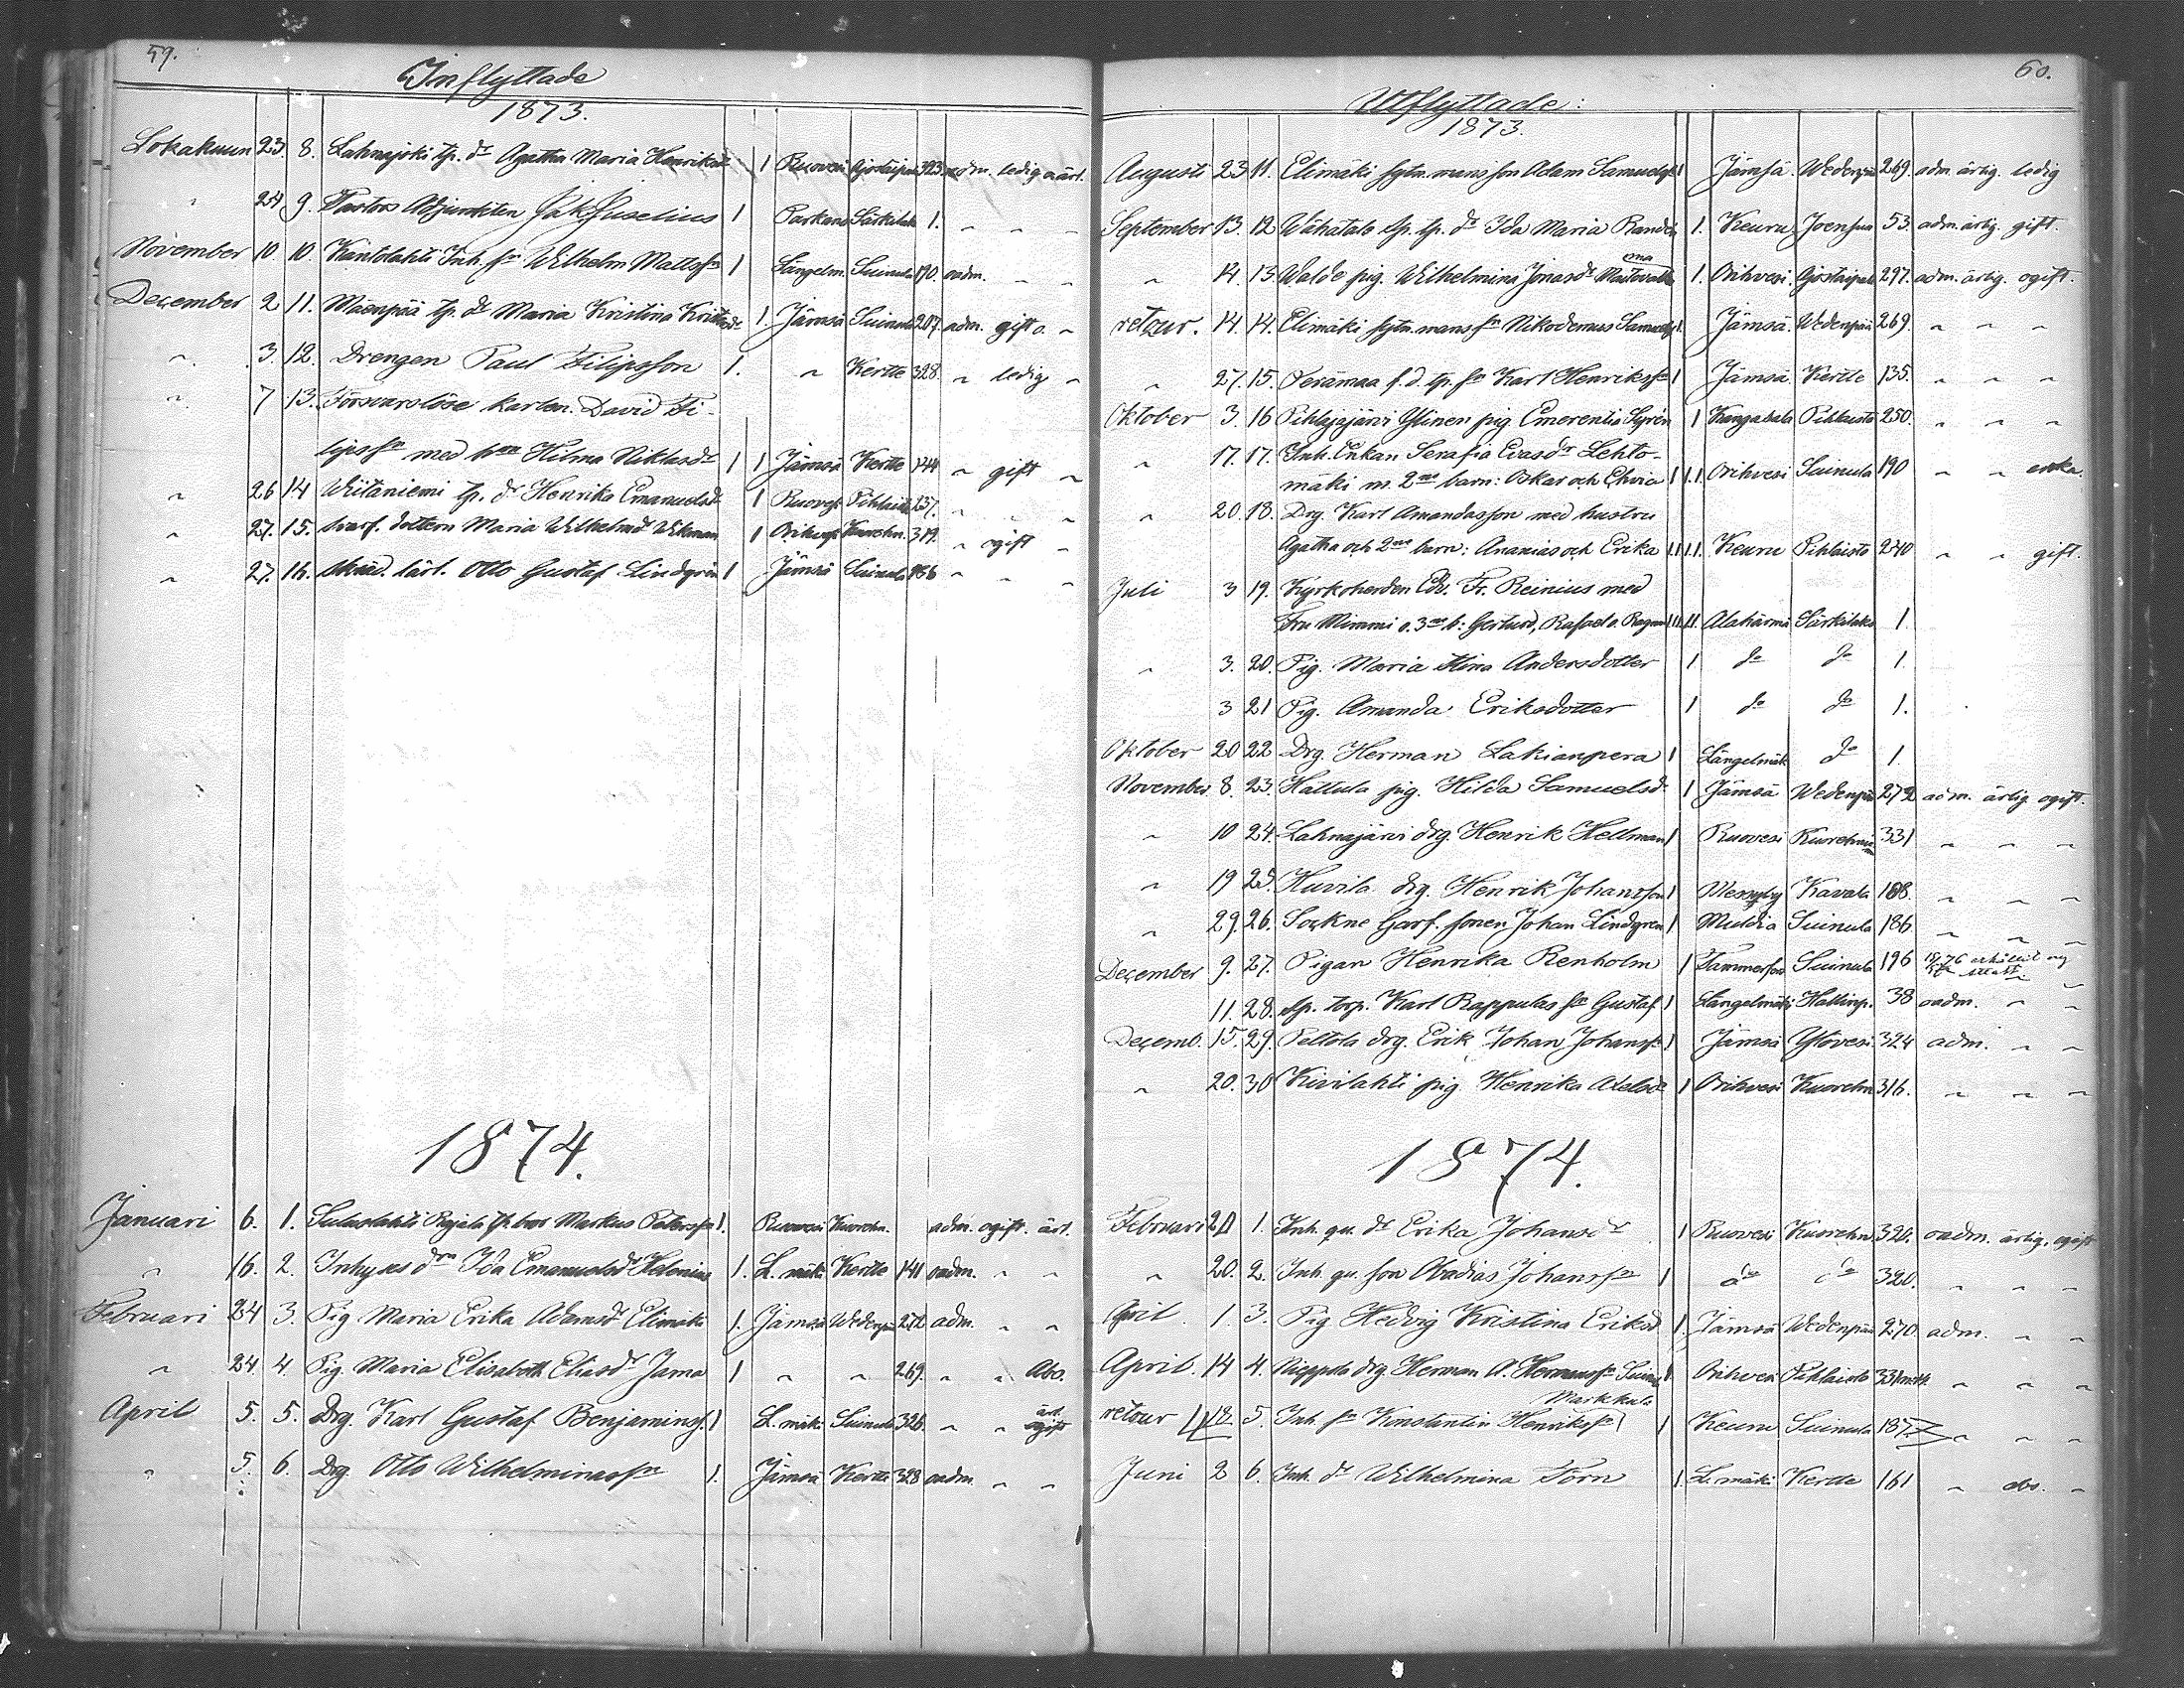 59.
Inflyttade
1873.
Lokakuun 23. 8. Lahnajoki tp. dr Agatha Maria Henriksdr 1 Ruovesi Ajostaipale 323 adm. ledig o. ärl.
" 24 9. Pastors Adjunkten Jak. Juselius 1 Parkano Särkilaks 1. " " "
November 10 10. Kantolahti Inh. sn Wilhelm Mattssn 1 Längelm. Suinula 190. oadm. " "
December 2 11. Mäenpää tp. dr Maria Kristina 1. Jämsä Suinula 207. adm. gift o. "
" 3. 12. Drengen Paul Filipsson 1. " Kertte 328. " ledig "
" 7 13. Försvarslöse karlen David Fi-
lipssn med hun Hilma Niklasdr 1 1 Jämsä Kertte 144 " gift "
" 26 14 Witaniemi tp. dr Henrika Emanuelsdr 1 Ruovesi Pihlaisto 237. " " "
" 27. 15. dottern Maria Wilhelmdr Wikman 1 Orihvesi Kuorehm. 319. " ogift "
" 27. 16. lärl. Otto Gustaf Lindgren 1 Jämsä Suinula 186 " " "
1874.
Januari 6. 1. Rajala tp. bror Markus Peterssn 1. Ruovesi Kuorehm. adm. ogift. ärl.
" 16. 2. Inhyses drn Ida Emanuelsdr Helenius 1. L. mäki Kertte 141 oadm. " "
Februari 24 3. Pig Maria Erika Adamsdr Elimäki 1. Jämsä Wedenpää 272 adm. " "
" 24. 4. Pig. Maria Elisabeth Eliasdr Jama 1 " " 269. " " Abs.
April 5. 5. Drg. Karl Gustaf Benjaminss. 1 L. mäki Suinula 326. " " ärl. ogift
" 5. 6. Drg. Otto Wilhelminassn 1. Jämsä Kertte 328 oadm. " "
60.
Utflyttade:
1873.
Augusti 23 11. Elimäki sytn. mans son Adam Samuelss 1 Jämsä Wedenpää 269. adm. ärlig. ledig
September 13. 12 Wähätalo sp. tp. dr Ida Maria Randén 1. Keuru Joensuu 53. adm. ärlig. gift.
" 14. 13. Walde pig. Wilhelmina Jonasdr 1. Orihvesi Ajostaipale 297. adm. ärlig. ogift.
retour. 14. 14. Elimäki sytn. mans sn Nikodemus Samuelss 1. Jämsä Wedenpää 269. " " "
" 27. 15. Perämaa f. d. tp. sn Karl Henrikssn 1 Jämsä Kertte 135. " " "
Oktober 3. 16 Pihlajajärvi Ylinen pig. Emerentia Syrén 1 Kangasala Pihlaisto 250. " " "
" 17. 17. Inh. Enkan Serafia Evasdr Lehto-
mäki m. 2ne barn: Oskar och Elvia 1 1.1 Orihvesi Suinula 190 " " enka.
" 20. 18. Drg. Karl Amandasson med hustru
Agatha och 2ne barn: Ananias och Erika 1.1 1.1. Keuru Pihlaisto 240 " " gift.
Juli 3 19. Kyrkoherden Edv. Fr. Reinius med
Fru Mimmi o. 3ne b: Gertrud, Rafael o. Ragnar Alahärmä Särkilaks 1.
" 3. 20. Pig. Maria Stina Andersdotter 1 do do 1.
3 21 Pig. Amanda Eriksdotter 1 do do 1.
Oktober 20 22 Drg. Herman Lakianpera 1 Längelmäk. do 1.
November 8. 23. Hattula pig. Hilda Samuelsdr 1 Jämsä Wedenpää 272 adm. ärlig ogift.
" 10 24. Lahnajärvi drg. Henrik Hellman 1 Ruovesi Kuorehm. 331 " " "
" 19 25. Huvila drg. Henrik Johansson 1 Messuby Kavala 108. " " "
" 29. 26. Sockne Garf. sonen Johan Lindgren 1 Multia Suinula 186. " " "
December 9. 27. Pigan Henrika Renholm 1 Tammerfors Suinula 196
11. 28. Sp. torp. Karl Rappulas sn Gustaf 1 Längelmäki Hallinp. 38 oadm. " "
Decemb. 15. 29. Peltola drg. Erik Johan Johanss 1 Jämsä Ylövesi 324 adm. " "
" 20. 30 Kivilahti pig. Henrika Abelsdr 1 Orihvesi Kuorehm 316. " " "
1874.
Februari 20 1. Inh. qv. dr Erika Johansdr 1 Ruovesi Kuorehm. 320. oadm. ärlig. ogift
" 20. 2. Inh. qv. son Abadias Johanssn 1 do do 320. " " "
April 1. 3. Pig Hedvig Kristina Eriksd 1. Jämsä Wedenpää 270. adm. " "
April. 14 4. drg. Herman A. Hermanssn 1. Orihvesi Pihlaisto " " "
retour 18 5. Inh. sn Konstantin Henrikssn Markkula 1 Keuru Suinula 187 " " "
Juni 2 6. Inh. dr Wilhelmina Forn 1. L. mäki Kertte 161 " abs. "